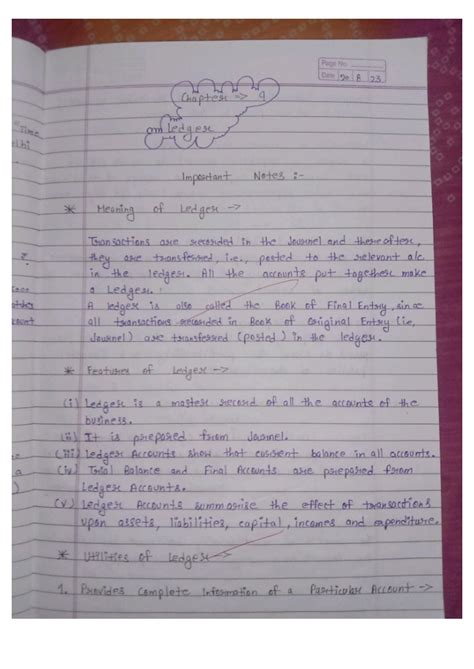 Page No.
Date 20 8 23
Chapter -> 9
Ledger
Important Notes :-
* Meaning of Ledger ->
Transactions are recorded in the Journal and thereafter,
they are transferred, i.e., posted to the relevant a/c
in the ledger. All the accounts put together make
a Ledger.
A ledger is also called the Book of Final Entry, since
all transactions recorded in Book of Original Entry (ie,
Journel) are transferred (posted) in the ledger.
* Features of Ledger ->
(i) Ledger is a master record of all the accounts of the
business.
(ii) It is prepared from Journel.
(iii) Ledger Accounts show that current balance in all accounts.
(iv) Trial Balance and Final Accounts are prepared from
Ledger Accounts.
(v) Ledger Accounts summarise the effect of transactions
upon assets, liabilities, capital, incomes and expenditure.
* Utilities of Ledger ->
1. Provides Complete Information of a Particular Account ->